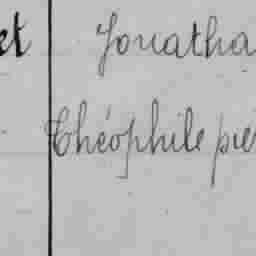 et Jonatha
Théophile pie